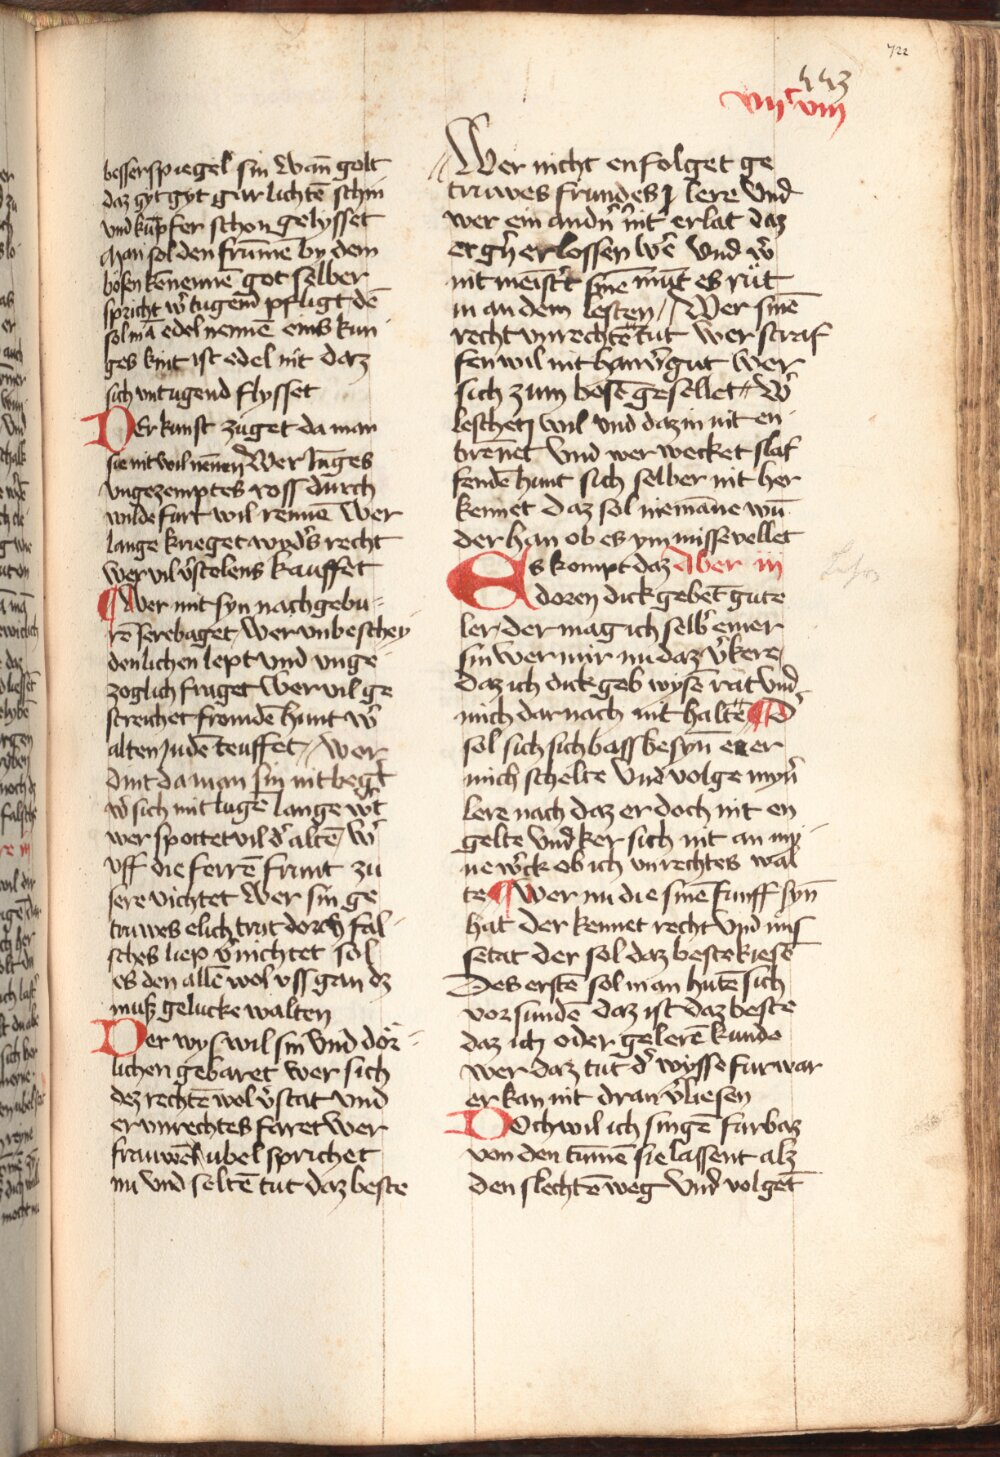 722
443
viiᶜ viii
besserspiegel sin Wañ golt
daz gyt gyt gar lichtē schin
vnd kupfer schon gelysset
Man sol den frūmē by dem
bösen kennennē got selber
spricht wˀ tugend pfligt dē
sol mā edel nennē eins kun
ges kint ist edel nit daz
sich vntugend flysset
Der kunst zuget da man
sie nit wil nēnen Wer lūges
vngezemptes ross durch
wilde furt wil rennē Wer
lange krieget wydˀs recht
wer vil vˀstolens kauffet
¶ Wer mit syn nachgebu-
rē sere baget Wer vnbeschey
denlichen lept vnd vnge
zoglich fraget Wer vil ge
streichet fromdē hunt wˀ
alten Judē teuffet Wer
dint da man sin nit begˀt
wˀ sich mit lugē lange wˀt
wer spottet vil dˀ altē wˀ
vff die ferrē frunt zu
sere vichtet Wer sin ge
truwes elich trut dorch fal-
sches liep vˀnichtet sol
es den allē wol vss gan dz
muß gelucke walten
Der wys wil sin vnd dör-
lichen gebaret wer sich
dez rechtē wol vˀstat vnd
er vnrechtes faret wer
frauwen ubel sprichet
nu vnd seltē tut daz beste
Wer nicht enfolget ge
truwes frundes lere Vnd
wer ein andˀn nit erlat daz
er gˀn erlossen wˀe Vnd wˀ
nit meistˀt sinē mut es rüt
in an dem lesten Wer sinē
recht vnrechtē tut wer straf
fen wil nit hat vˀ gut Wer
sich zum bosē gesellet wˀ
leschen wil vnd daz in nit en
brēnet Vnd wer wecket slaf
fendē hunt sich selber nit her
kennet daz sol niemāne wū
der han ob es ym missevellet
Es kompt daz Aber in
doren dick gebēt gute
ler der mag ich selbˀ einer
sin wer mir nu daz vˀkere
daz ich dick geb wysē rat vnd
mich dar nach nit haltē ¶ Dˀ
sol sich sich bass besyn e er
mich schelte Vnd volge mynˀ
lere nach daz er doch nit en
gelte Vnd ker sich nit an my
ne wˀck ob ich vnrechtes wal
te ¶ Wer nu die sinē funff syn̄
hat der kennet recht vnd mis
setat der sol daz beste kiesē
Des erstē sol man hutē sich
vor sundē daz ist daz beste
daz ich oder gelerē kunde
wer daz tut dˀ wysse furwar
er kan nit dran vˀliesen
Doch wil ich singē furbaz
von den tumē sie lassent alz
den slechtē weg Vnd volgēt